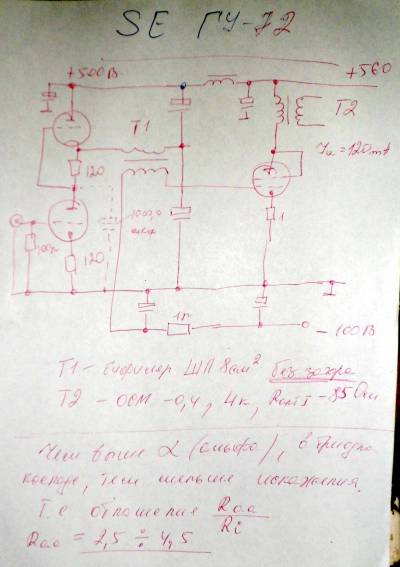 SE ГУ-72
+500В
+560
T1
T2
Ja = 120mA
120
1000,0
мкф
100к
120
1
1к
-100В
T1 - бифиляр ШЛ 8см² без зазора
T2 - ОСМ -0,4, 4к, Rопт I - 85 Ом
Чем выше α (альфа), в триодн
каскаде, тем меньше искажения.
Т.е отношение Rа.а
Ri
Rа.а = 2,5 ÷ 4,5